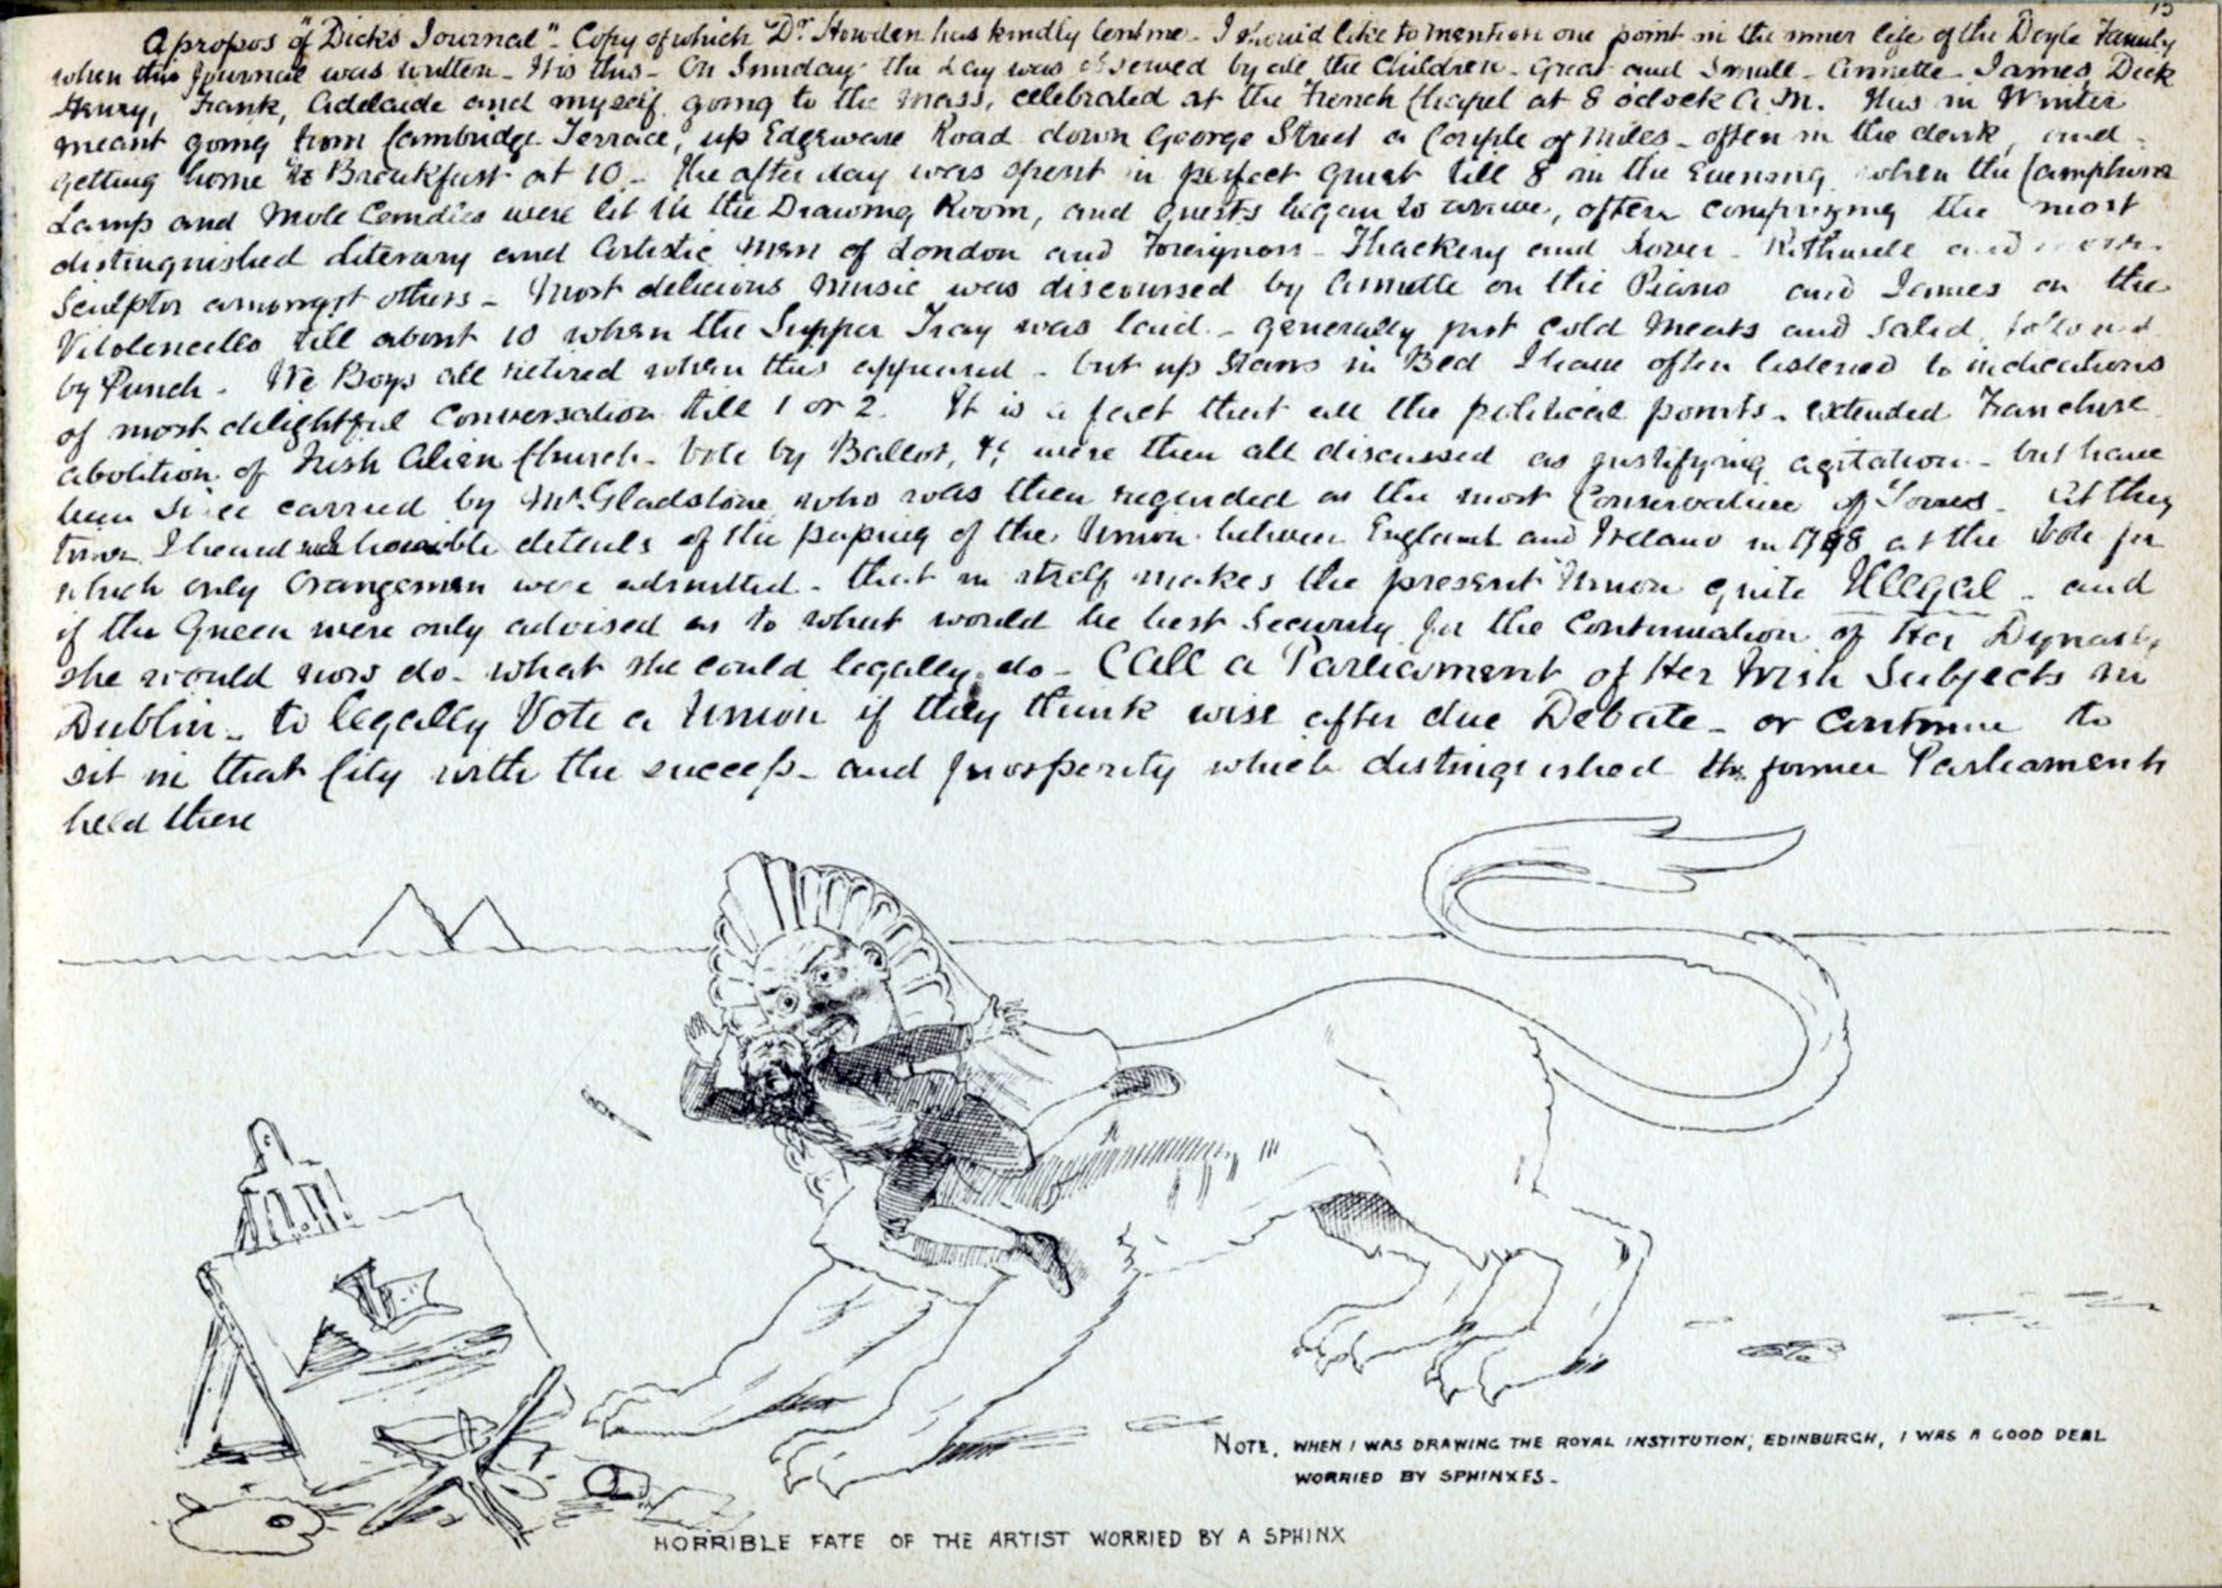 15
Apropos of "Dick's Journal" - Copy of which Dr Howden has kindly lent me - I should like to mention one point in the inner life of the Doyle Family
when this Journal was written - It is this - On Sunday the day was observed by all the Children - Great and Small - Annette - James, Dick
Henry, Frank, Adelaide and myself going to the Mass, celebrated at the French Chapel at 8 oclock A.M. This in Winter
meant going from Cambridge Terrace, up Edgeware Road down George Street a Couple of Miles - often in the dark, and
getting home to Breakfast at 10 - The after day was spent in perfect quiet till 8 in the Evening when the Camphine
Lamp and Mole Candles were lit in the Drawing Room, and guests began to arrive, often comprizing the most
distinguished Literary and Artistic Men of London and Foreigners - Thackery and Lover - Rothwell and
Sculptor amongst others - Most delicious Music was discoursed by Annette on the Piano and James on the
Violoncello till about 10 when the Supper Tray was laid - generally just cold Meats and Salad, followed
by Punch - We Boys all retired when this appeared - but up Stairs in Bed I have often listened to indications
of most delightful Conversation till 1 or 2. It is a fact that all the political points - extended Franchise
abolition of Irish Alien Church - Vote by Ballot, &c were then all discussed as justifying agitation - but have
been since carried by Mr Gladstone who was then regarded as the most Conservative of Tories - At this
time I heard such horrible details of the of the Union between England and Ireland in 1798 at the Vote for
which only Orangemen were admitted - that in itself makes the present Union quite Illegal - and
if the Queen were only advised as to what would be best Security for the Continuation of Her Dynasty,
she would now do - what she could legally do - Call a Parliament of Her Irish Subjects in
Dublin - to legally Vote a Union if they think wise after due Debate - or Continue to
sit in that City with the success - and prosperity which distinguished the former Parliaments
held there
NOTE. WHEN I WAS DRAWING THE ROYAL INSTITUTION, EDINBURGH, I WAS A GOOD DEAL
WORRIED BY SPHINXES -
HORRIBLE FATE OF THE ARTIST WORRIED BY A SPHINX